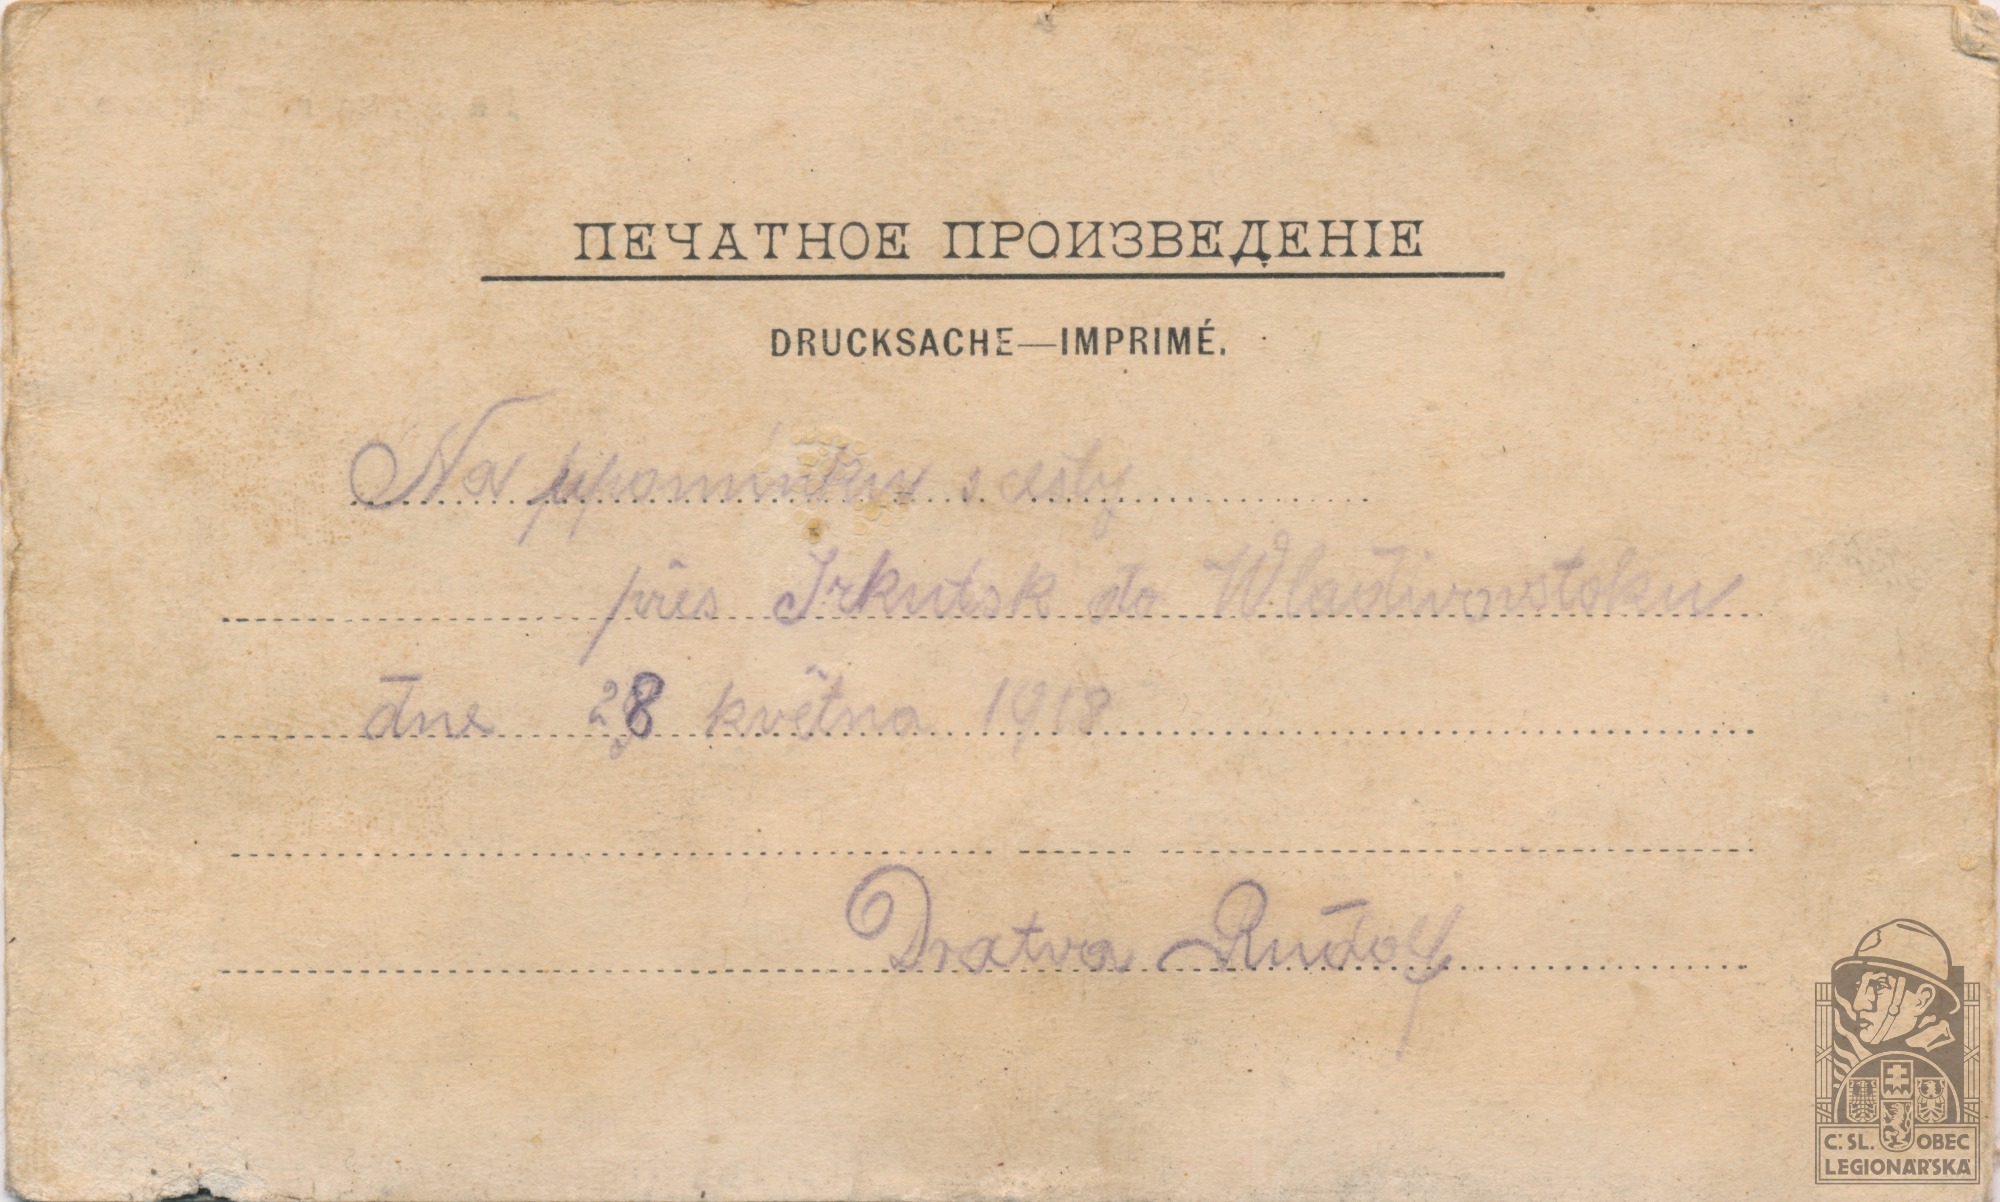 ПЕЧАТНОЕ ПРОИЗВЕДЕНІЕ
DRUCKSACHE—IMPRIMÉ.
Na upomínku s cesty
přes Irkutsk do Wladivovstoku
dne 28 května 1918
Dratva Rudolf
Č. SL. OBEC
LEGIONÁŘSKÁ